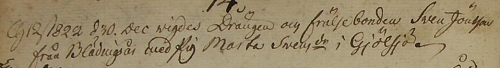 1822 d 30. Dec vigdes Drängen och frälsebonden Sven Jönsson
från Bladingsås med Pig Marta Svens dr i Gjölsjö